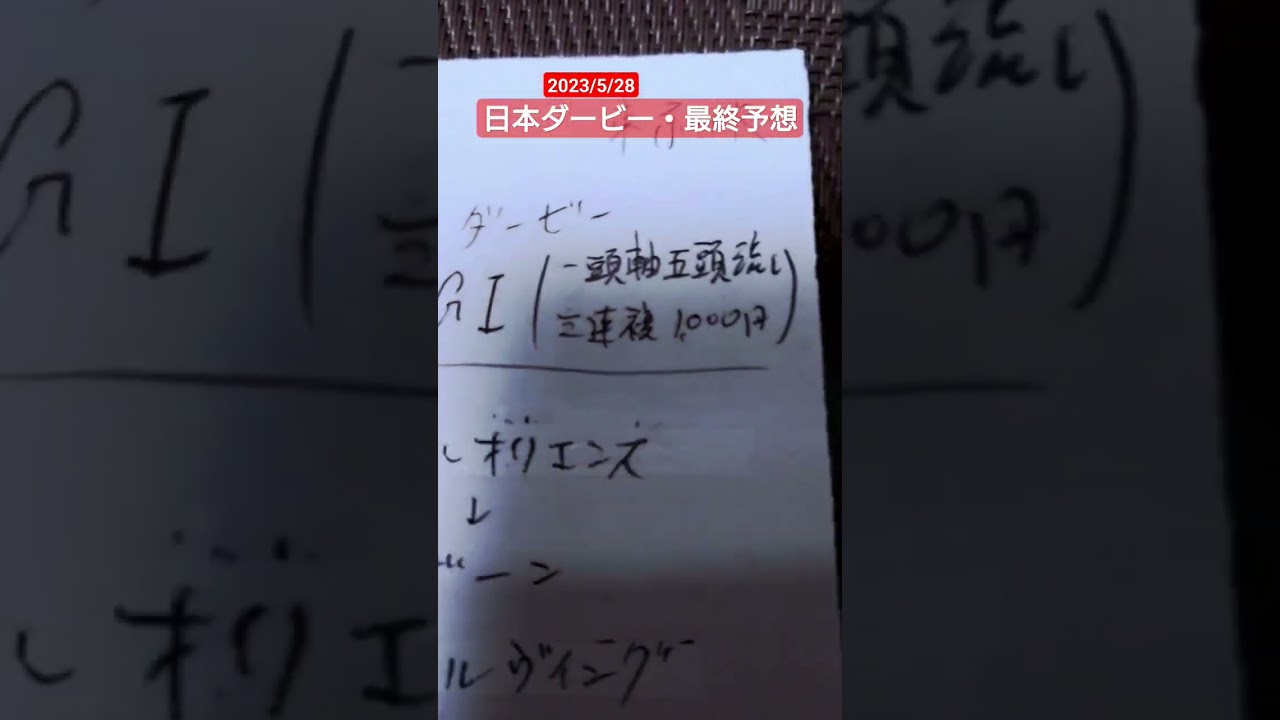 2023/5/28
日本ダービー・最終予想
ダービー
GI(一頭軸五頭流し
三連複 1,000円)
ソ オリエンス
↓
ーン
ルヴィング